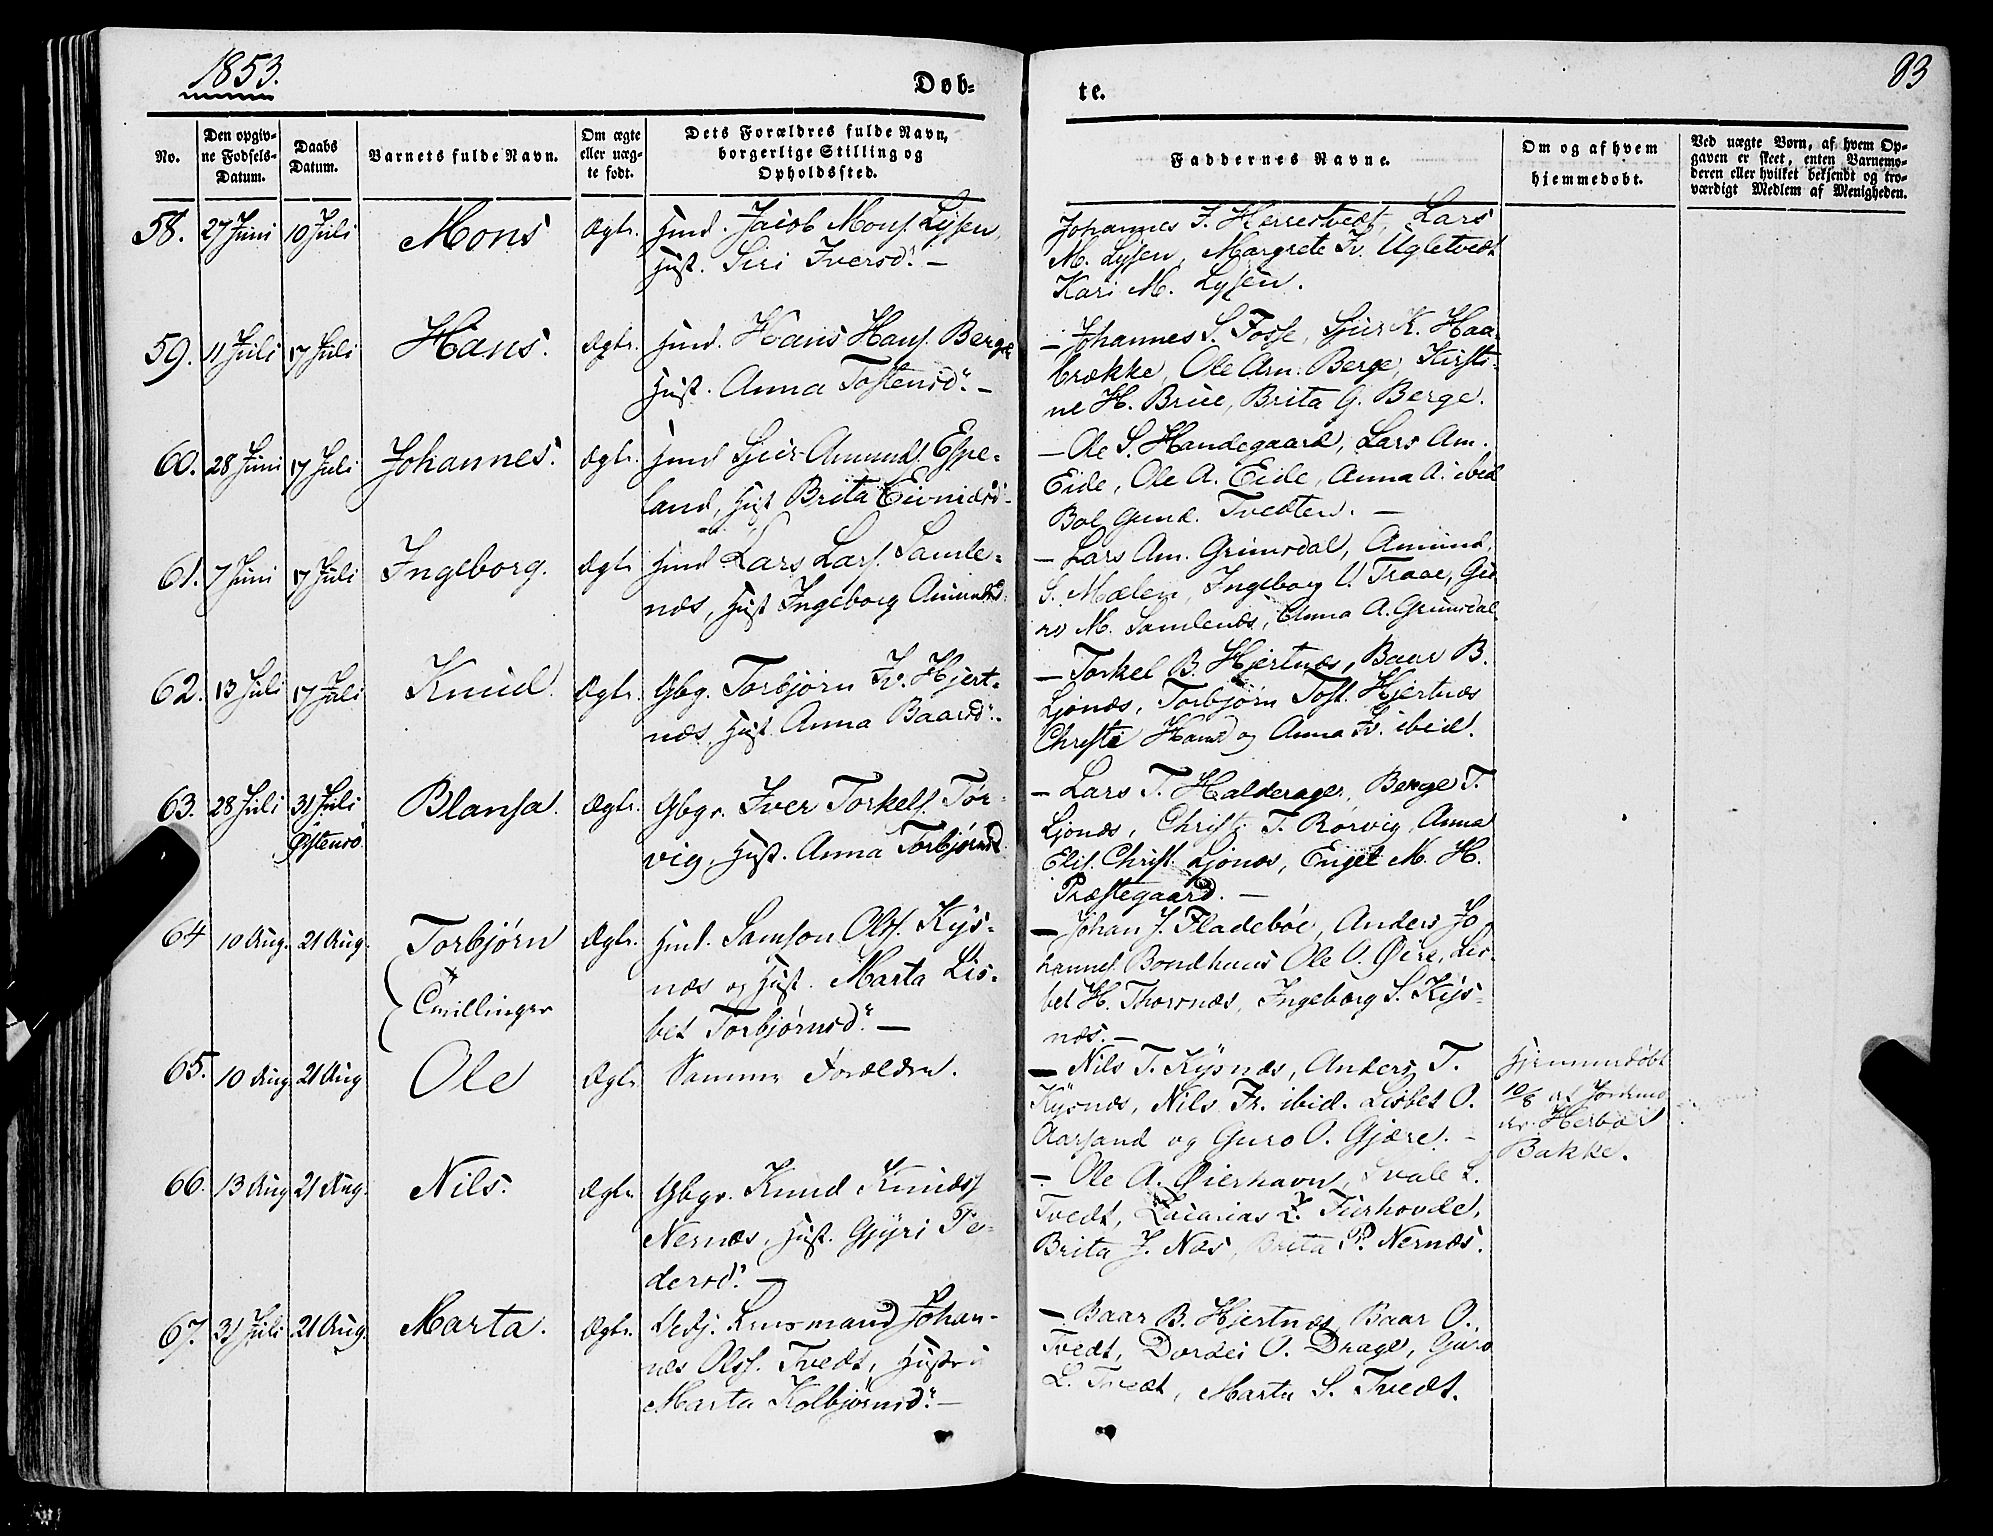 1853.
Døb-
te.
83
No.
Den opgiv-
ne Fødsels-
Datum.
Daabs
Datum.
Barnets fulde Navn.
Om ægte
eller uæg-
te født.
Dets Forældres fulde Navn,
borgerlige Stilling og
Opholdssted.
Faddernes Navne.
Om og af hvem
hjemmedøbt.
Ved uægte Børn, af hvem Op-
gaven er skeet, enten Barnemo-
deren eller hvilket bekjendt og tro-
værdigt Medlem af Menigheden.
58. 27 Juni 10 Juli Mons Ægte. Huusmd. Jacob Mons. Lysen,
Hust. Siri Iversd. —
Johannes J. Herrestvedt, Lars
M. Lysen, Margrete Iv. Ugletvedt
Kari M. Lysen.
59. 11 Juli 17 Juli Hans. Ægte. Huusmd. Hans Hans. Berge
Hust. Anna Tostensd. —
— Johannes S. Fosse, Sjur K. Haa-
brække, Ole Arn. Berge, Kirsti-
ne H. Brue, Brita G. Berge.
60. 28 Juni 17 Juli Johannes. Ægte. Huusmd Sjur Amunds. Espe-
land, Hust Brita Eivindsd
— Ole S. Handegaard, Lars Am.
Eide, Ole A. Eide, Anna A. ibid
Bol Gund. Tvedten. —
61. 7 Juni 17 Juli Ingeborg. Ægte Huusmd Lars Lars. Samle-
næs, Hust Ingeborg Amundsd.
— Lars Am. Grimsdal, Amund.
S. Mælen, Ingeborg U. Traae, Gu-
ro M. Samlenæs, Anna A. Grimsdal
62. 13 Juli 17 Juli Knud. Ægte. Gbgr. Torbjørn Iv. Hjert-
næs, Hust. Anna Baarsd.
— Torkel B. Hjertnæs, Baar B.
Ljonæs, Torbjørn Tost. Hjertnæs
Christi Hansd og Anna Iv. ibid.
63. 28 Juli 31 Juli Blansa. Ægte. Gbgr. Iver Torkels. Tør-
Østensø
vig, Hust. Anna Torbjørnsd
— Lars T. Halderager, Berge T.
Ljonæs, Christi T. Rørvig, Anna
Elis. Christ. Ljonæs, Engel M. H.
Præstegaard. —
64 10 Aug. 21 Aug. Torbjørn Ægte. Huusmd. Samson Ols. Kys-
næs og Hust. Marta Lis-
Tvillinger
bet Torbjørnsd. —
— Johan J. Fladebøe, Anders Jo
hannes. Bondhuus Ole O. Øire, Lis-
bet H. Thorsnæs, Ingeborg S. Kys-
næs. —
65. 10 Aug 21 Aug Ole Ægte Samme Forældre.
— Nils T. Kysnæs, Anders T.
Kysnæs, Nils Fr. ibid. Lisbet O.
Aarsand og Guro O. Gjære. —
Hjemmedøbt
10/8 af Jordmo
der Herbor
Bakke.
66. 13 Aug 21 Aug. Nils. Ægte Gbgr. Knud Knuds.
Nernæs, Hust. Gyri Pe-
dersd. —
— Ole A. Øierhavn, Svale L.
Tvedt, Zacarias Z. Tierhovde,
Brita J. Næs, Brita P. Nernæs.
67. 31 Juli 21 Aug. Marta. Ægte. Lensmand Johan-
nes Ols. Tvedt, Hustru
Marta Kolbjørnsd. —
— Baar B. Hjertnæs, Baar O.
Tvedt, Dordei O. Drage, Guro
L. Tvedt, Marta S. Tvedt.